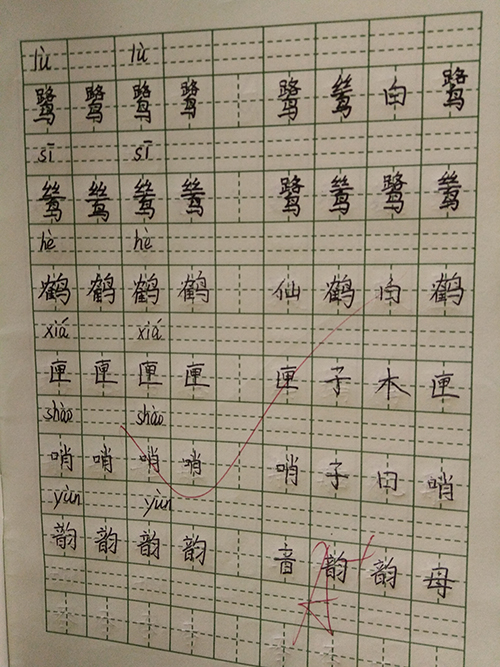 lù lù
鹭 鹭 鹭 鹭 鹭 鸶 白 鹭
sī sī
鸶 鸶 鸶 鸶 鹭 鸶 鹭 鸶
hè hè
鹤 鹤 鹤 鹤 仙 鹤 白 鹤
xiá xiá
匣 匣 匣 匣 匣 子 木 匣
shào shào
哨 哨 哨 哨 哨 子 口 哨
yùn yùn
韵 韵 韵 韵 音 韵 韵 母